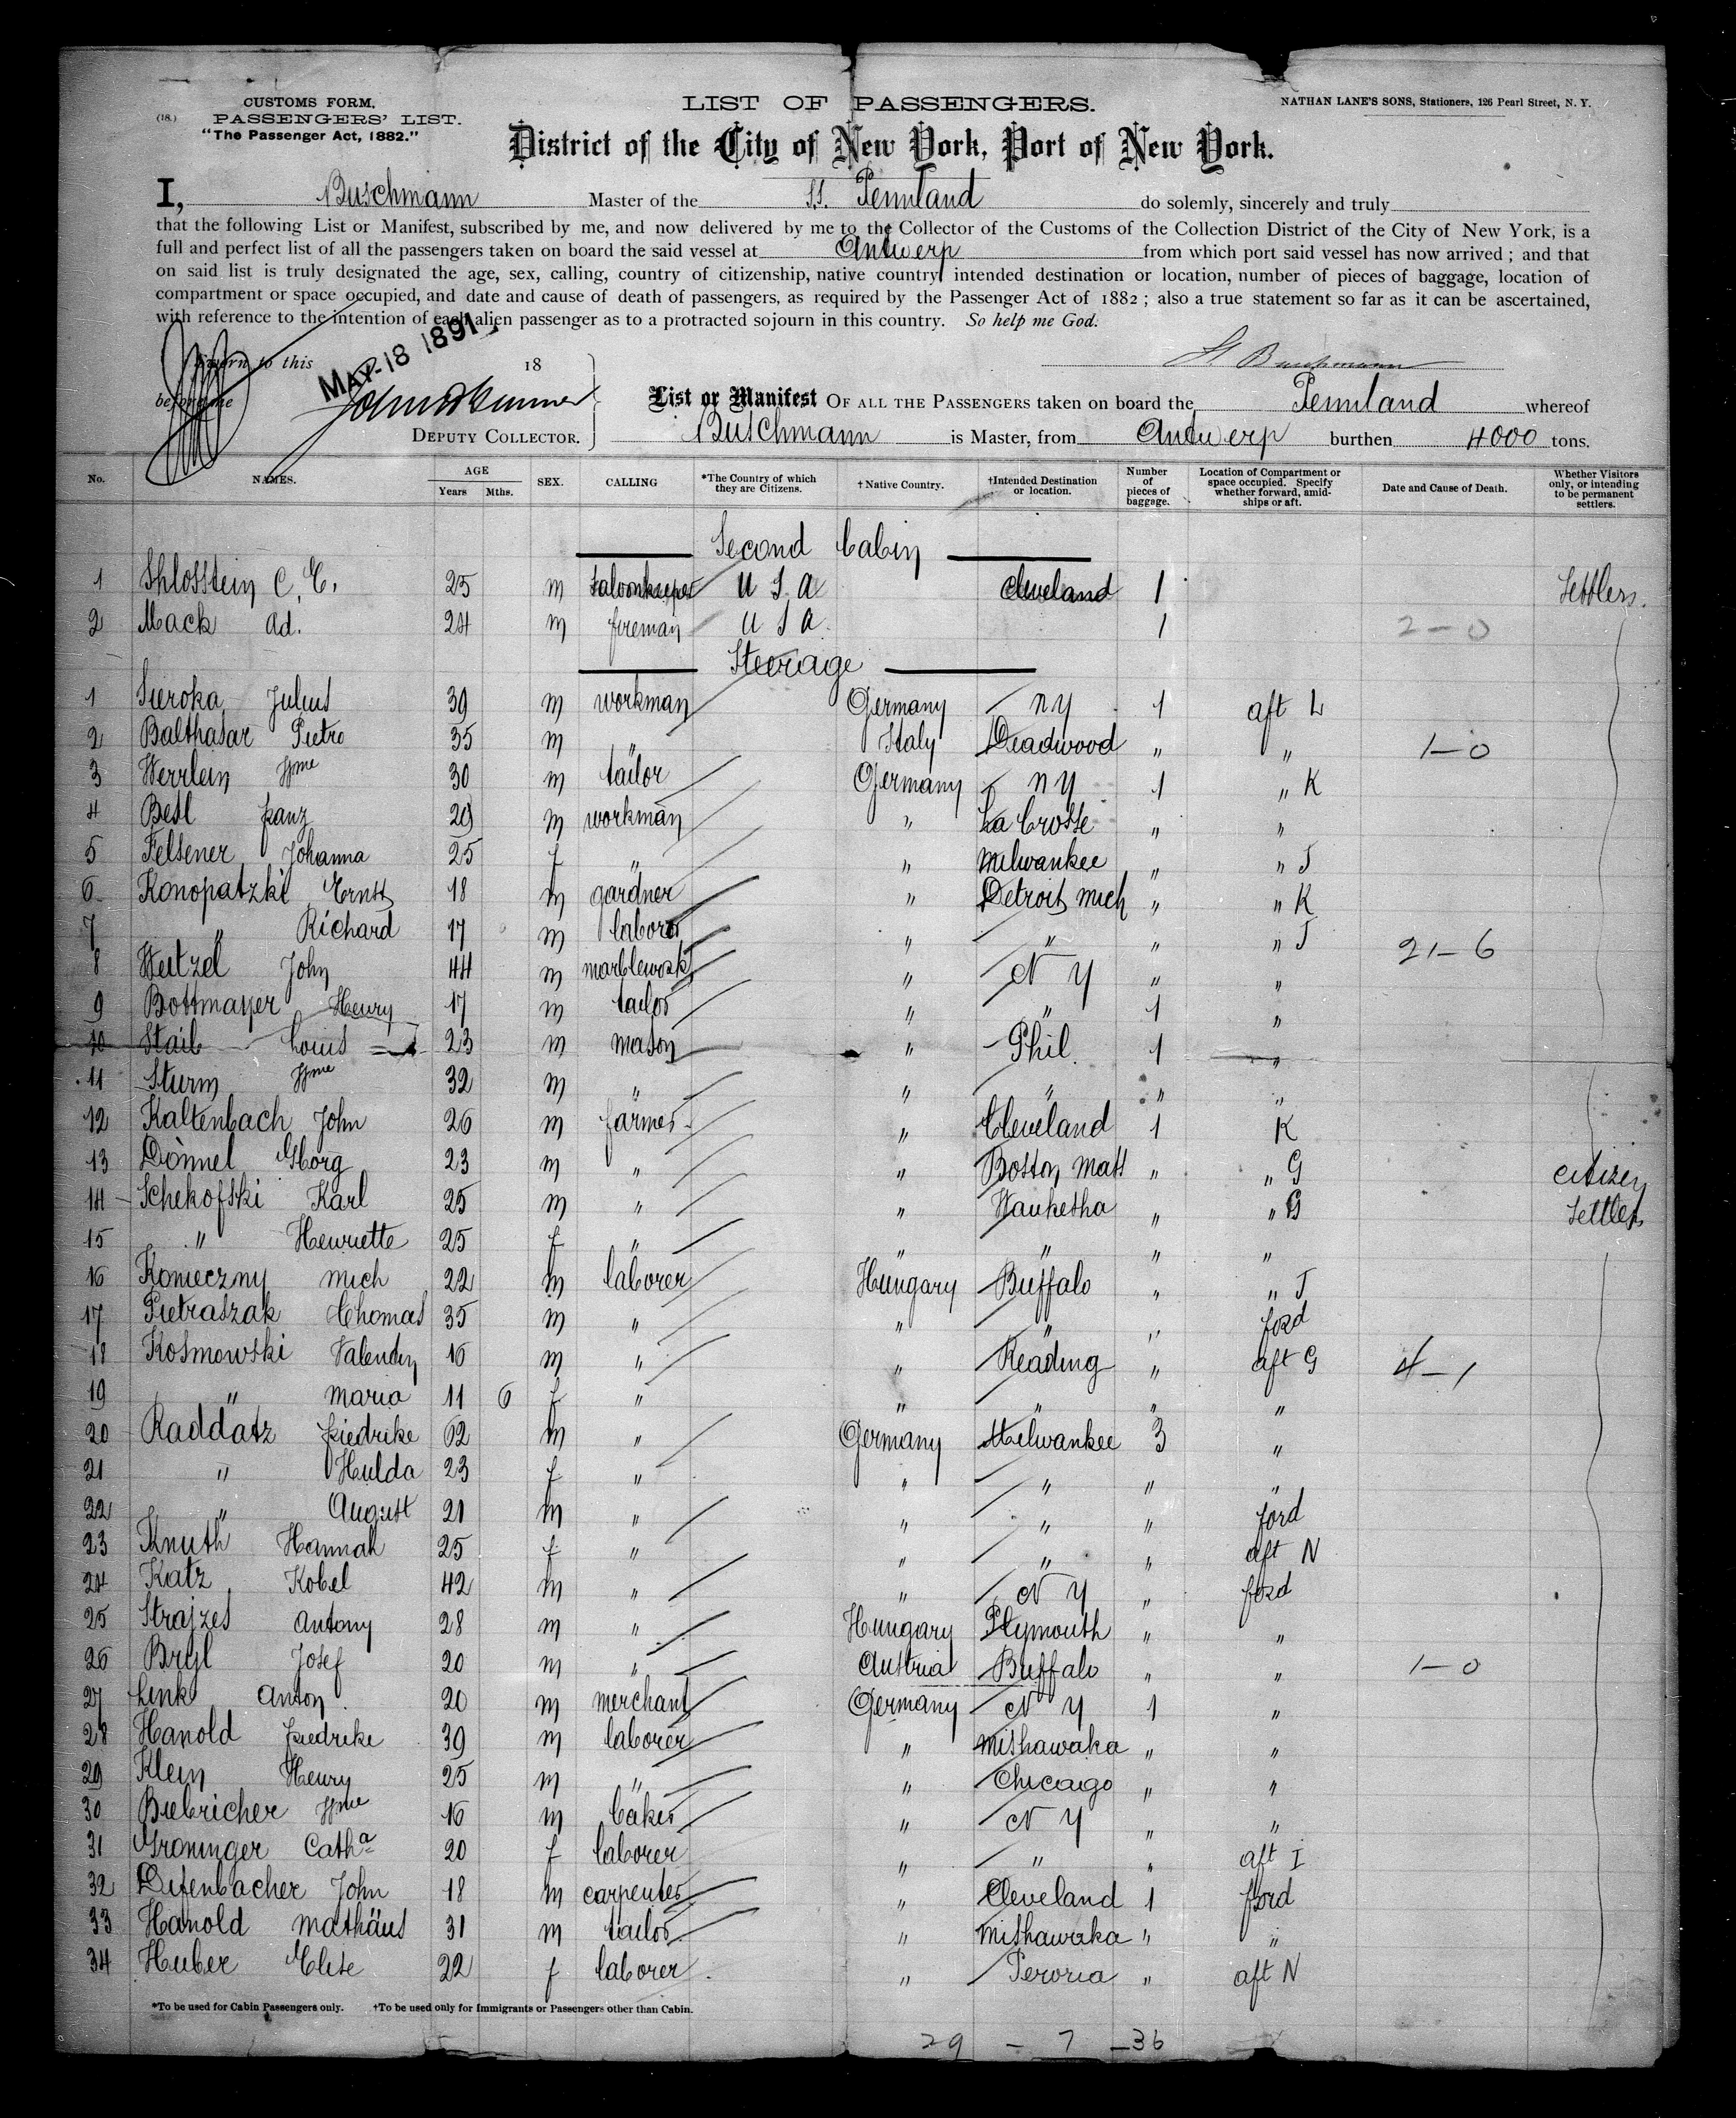 CUSTOMS FORM.
(18.) PASSENGERS' LIST.
"The Passenger Act, 1882."
LIST OF PASSENGERS.
NATHAN LANE'S SONS, Stationers, 126 Pearl Street, N. Y.
District of the City of New York, Port of New York.
I, Buschmann Master of the SS. Pennland do solemly, sincerely and truly
that the following List or Manifest, subscribed by me, and now delivered by me to the Collector of the Customs of the Collection District of the City of New York, is a
full and perfect list of all the passengers taken on board the said vessel at Antwerp from which port said vessel has now arrived ; and that
on said list is truly designated the age, sex, calling, country of citizenship, native country intended destination or location, number of pieces of baggage, location of
compartment or space occupied, and date and cause of death of passengers, as required by the Passenger Act of 1882 ; also a true statement so far as it can be ascertained,
with reference to the intention of each alien passenger as to a protracted sojourn in this country. So help me God.
Sworn to this MAY 18 1891 18
before me
DEPUTY COLLECTOR.
List or Manifest OF ALL THE PASSENGERS taken on board the Pennland whereof
Buschmann is Master, from Antwerp burthen 4000 tons.
No. NAMES. AGE Years Mths. SEX. CALLING *The Country of which they are Citizens. †Native Country. †Intended Destination or location. Number of pieces of baggage. Location of Compartment or space occupied. Specify whether forward, amidships or aft. Date and Cause of Death. Whether Visitors only, or intending to be permanent settlers.
Second Cabin
1 Shlosstein C. E. 25 m Saloonkeeper U S A Cleveland 1 Settlers.
2 Mack Ad. 24 m fireman U S A 1 2-0
Steerage
1 Sieroka Julius 39 m workman Germany NY 1 aft L
2 Balthasar Pietro 35 m " Italy Deadwood " " 1-0
3 Werrlein 30 m tailor Germany NY 1 " K
4 Besl franz 29 m workman " La Crosse " "
5 Felsener Johanna 25 f " " Milwaukee " " J
6 Konopatzki Ernst 18 m gardner " Detroit Mich " " K
7 " Richard 17 m laborer " " " " J 21-6
8 Wetzel John 44 m marblework " N Y " "
9 Bottmayer Henry 17 m tailor " " 1 "
10 Stail Louis 23 m mason " Phil. 1 "
11 Sturm 32 m " " " " "
12 Kaltenbach John 26 m farmer " Cleveland 1 K
13 Donnel Georg 23 m " " Boston Mass " " G Citizen
14 Schekofski Karl 25 m " " Waukesha " " G Settlers
15 " Henriette 25 f " " " " "
16 Konieczny Mich 22 m laborer Hungary Buffalo " " J
17 Pietraszak Thomas 35 m " " " " ford
18 Kosmowski Valentin 16 m " " Reading " aft G 4-1
19 " Maria 11 6 f " " " " "
20 Raddatz friedrike 62 m " Germany Milwaukee 3 "
21 " Hulda 23 f " " " " "
22 " August 21 m " " " " ford
23 Knuth Hannah 25 f " " " " aft N
24 Katz Kobel 42 m " " N Y " ford
25 Strajzes Antony 28 m " Hungary Plymouth " "
26 Bryl Josef 20 m " Austria Buffalo " " 1-0
27 Link Anton 20 m merchant Germany N Y 1 "
28 Hanold friedrike 39 m laborer " Mishawaka " "
29 Klein Henry 25 m " " Chicago " "
30 Biebricher 16 m baker " N Y " "
31 Groninger Catha 20 f laborer " " " aft I
32 Difenbacher John 18 m carpenter " Cleveland 1 ford
33 Hanold Mathäus 31 m tailor " Mishawaka " "
34 Huber Elise 22 f laborer " Peroria " aft N
*To be used for Cabin Passengers only. †To be used only for Immigrants or Passengers other than Cabin.
29 - 7 - 36